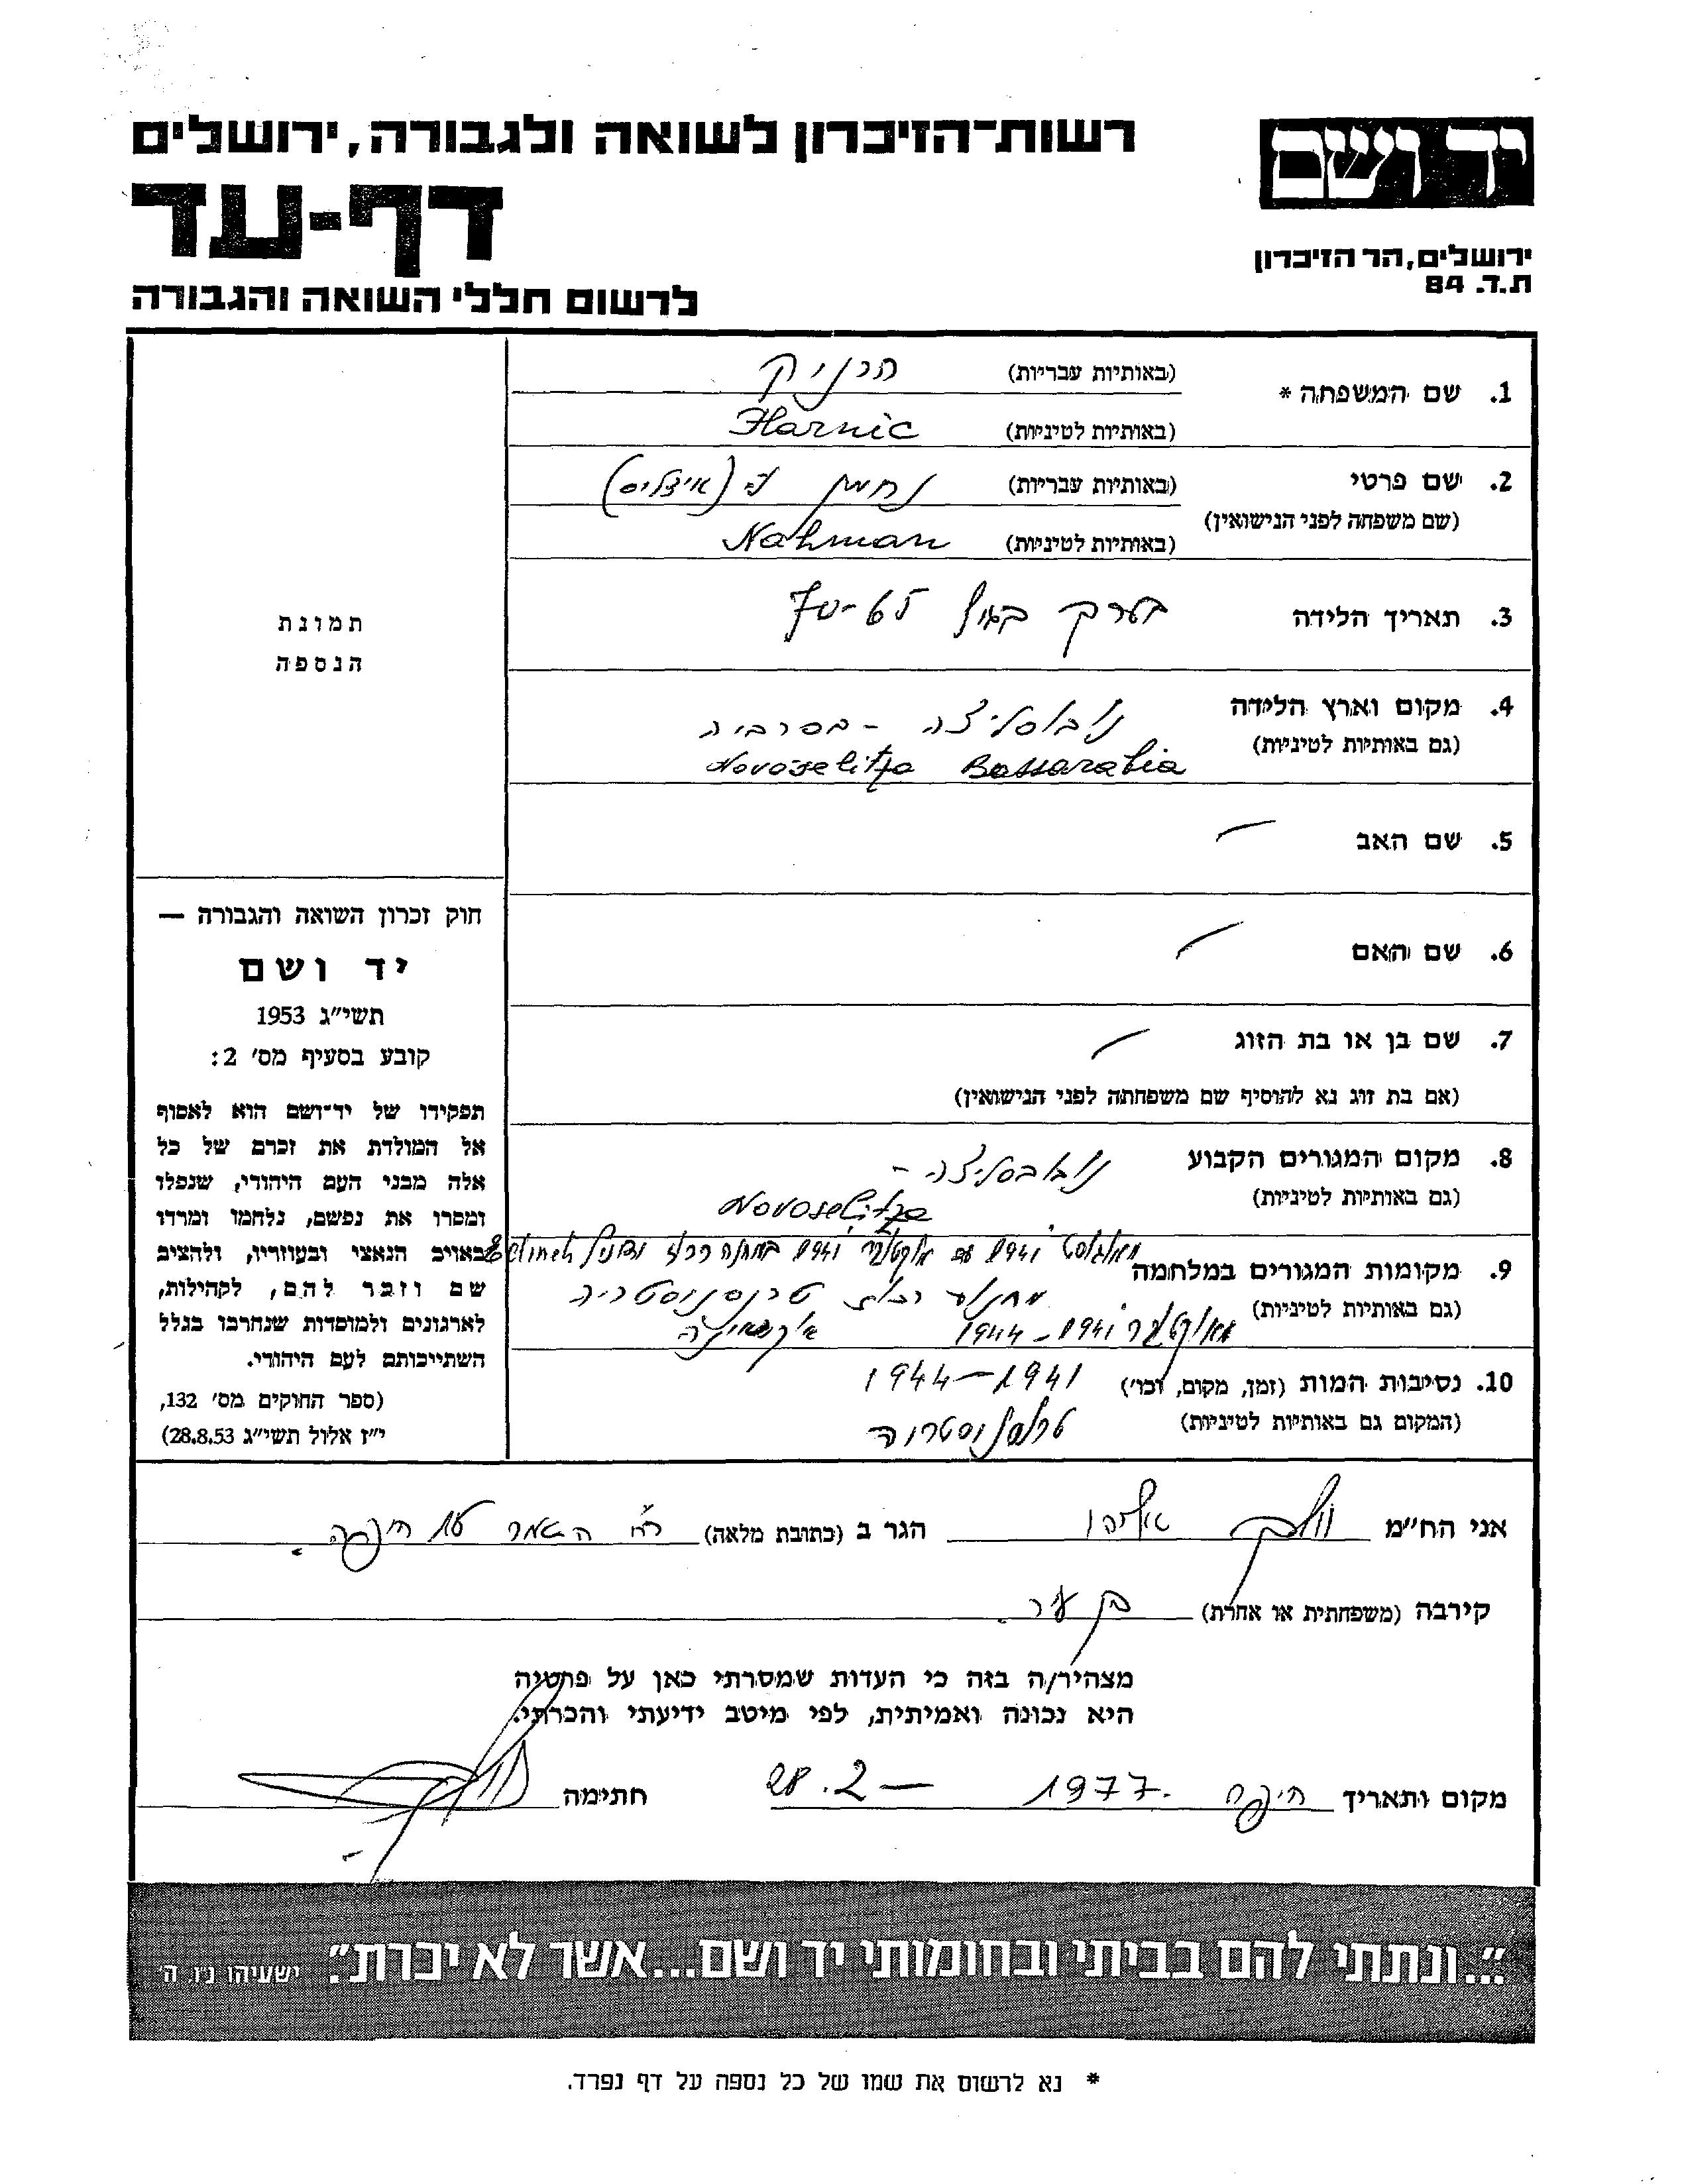 יד ושם
ירושלים, הר הזיכרון
ת.ד. 84
רשות-הזיכרון לשואה ולגבורה, ירושלים
דף-עד
לרשום חללי השואה והגבורה
1. שם המשפחה *
(באותיות עבריות) הרניק
(באותיות לטיניות) Harnic
2. שם פרטי
(שם משפחה לפני הנישואין)
(באותיות עבריות) נחמן
(באותיות לטיניות) Nahman
3. תאריך הלידה בערך בגיל 65-70
4. מקום וארץ הלידה נובוסליצה - בסרביה
(גם באותיות לטיניות) Novoselitza Bassarabia
5. שם האב
6. שם האם
7. שם בן או בת הזוג
(אם בת זוג נא להוסיף שם משפחתה לפני הנישואין)
8. מקום המגורים הקבוע נובוסליצה -
(גם באותיות לטיניות) Novoselitza
9. מקומות המגורים במלחמה מאוגוסט 1941 עד אוקטובר 1941 במחנה
(גם באותיות לטיניות) טרנסניסטריה
מאוקטובר 1941-1944 אוקראינה
10. נסיבות המות (זמן, מקום, וכו') 1941-1944
(המקום גם באותיות לטיניות) טרנסניסטריה
תמונת
הנספה
חוק זכרון השואה והגבורה —
יד ושם
תשי״ג 1953
קובע בסעיף מס' 2:
תפקידו של יד־ושם הוא לאסוף
אל המולדת את זכרם של כל
אלה מבני העם היהודי, שנפלו
ומסרו את נפשם, נלחמו ומרדו
באויב הנאצי ובעוזריו, ולהציב
שם וזכר להם, לקהילות,
לארגונים ולמוסדות שנחרבו בגלל
השתייכותם לעם היהודי.
(ספר החוקים מס' 132,
י״ז אלול תשי״ג 28.8.53)
אני הח״מ וולך הגר ב (כתובת מלאה) רח' חיפה.
קירבה (משפחתית או אחרת) בן עיר.
מצהיר/ה בזה כי העדות שמסרתי כאן על פרטיה
היא נכונה ואמיתית, לפי מיטב ידיעתי והכרתי.
מקום ותאריך חיפה 28.2-1977. חתימה
״...ונתתי להם בביתי ובחומותי יד ושם...אשר לא יכרת״. ישעיהו נ״ו, ה'
* נא לרשום את שמו של כל נספה על דף נפרד.